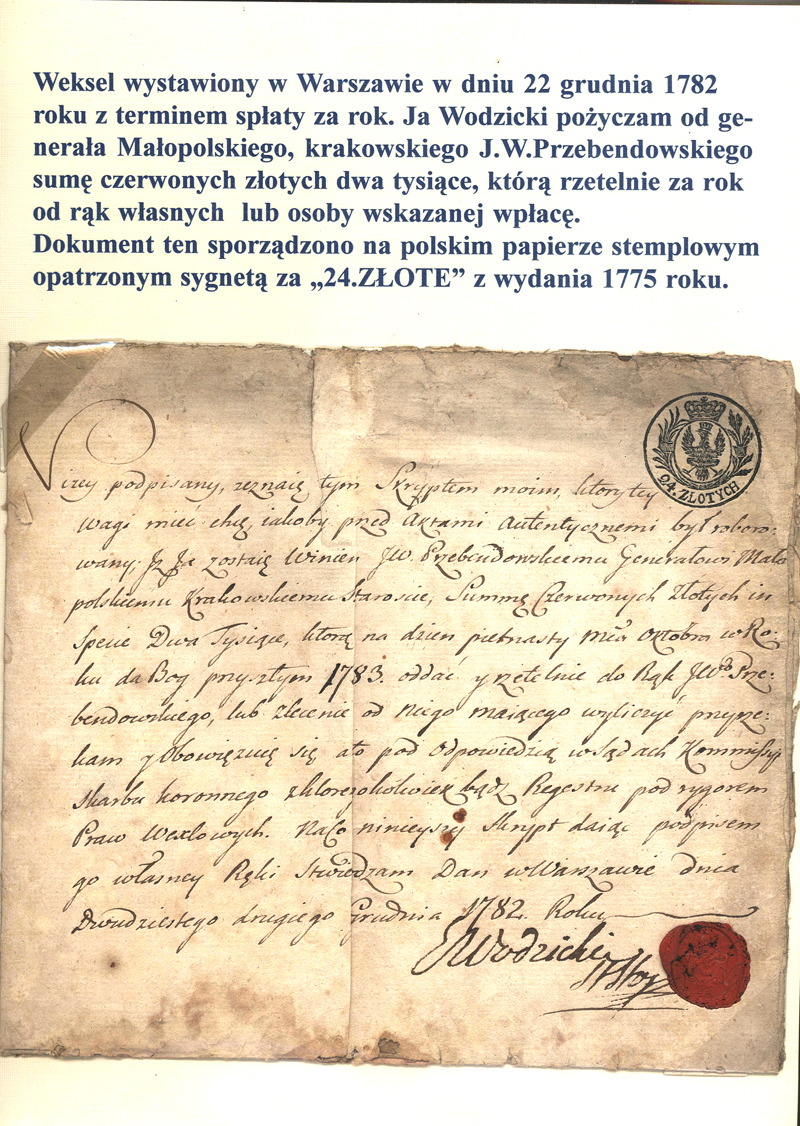 Weksel wystawiony w Warszawie w dniu 22 grudnia 1782
roku z terminem spłaty za rok. Ja Wodzicki pożyczam od ge-
nerała Małopolskiego, krakowskiego J.W.Przebendowskiego
sumę czerwonych złotych dwa tysiące, którą rzetelnie za rok
od rąk własnych lub osoby wskazanej wpłacę.
Dokument ten sporządzono na polskim papierze stemplowym
opatrzonym sygnetą za „24.ZŁOTE” z wydania 1775 roku.
24. ZŁOTYCH
Nizey podpisany, zeznaię tym Skryptem moim, ktory tey
wagi mieć chcę, iakoby przed Aktami Autentycznemi był roboro-
wany; Jż Ja zostaię Winien JW. Przebendowskiemu Generałowi Mało
polskiemu Krakowskiemu Staroscie, Summę Czerwonych Złotych in
Specie Dwa Tysiące, ktorą na dzien pietnasty Octobra w Ro-
ku da Bog przyszłym 1783. oddać y rzetelnie do Rąk JWo Prze-
bendowskiego, lub zlecenie od niego maiącego wyliczyć przyrze-
kam y Obowięzuię się, ato pod odpowiedzią w Sądach Kommissyi
Skarbu koronnego z ktoregokolwiek bądz Regestru pod rygorem
Praw Wexlowych. Naco ninieyszy Skrypt daiąc podpisem
go własney Ręki Stwierdzam Dan w Warszawie dnia
Dwudziestego drugiego Grudnia 1782. Roku
Wodzicki